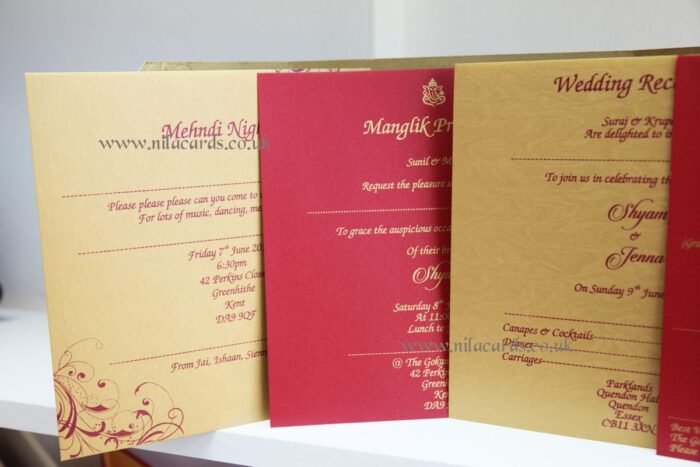 Mehndi Nigh
www.nilacards.co.uk
Please please please can you come to
For lots of music, dancing, me
Friday 7th June 20
6:30pm
42 Perkins Close
Greenhithe
Kent
DA9 9QF
From Jai, Ishaan, Sienn
Manglik Pr
Sunil & M
Request the pleasure
To grace the auspicious occa
Of their br
Shya
Saturday 8th
At 11:
Lunch to
@ The Goka
42 Perki
Green
Ken
DA9
Wedding Rece
Suraj & Krupe
Are delighted to in
To join us in celebrating the
Shyam
&
Jenna
On Sunday 9th June
www.nilacards.co.uk
Canapes & Cocktails
Dinner
Carriages:
Parklands
Quendon Hal
Quendon
Essex
CB11 3XN
(Gra
Best W
The Go
Please